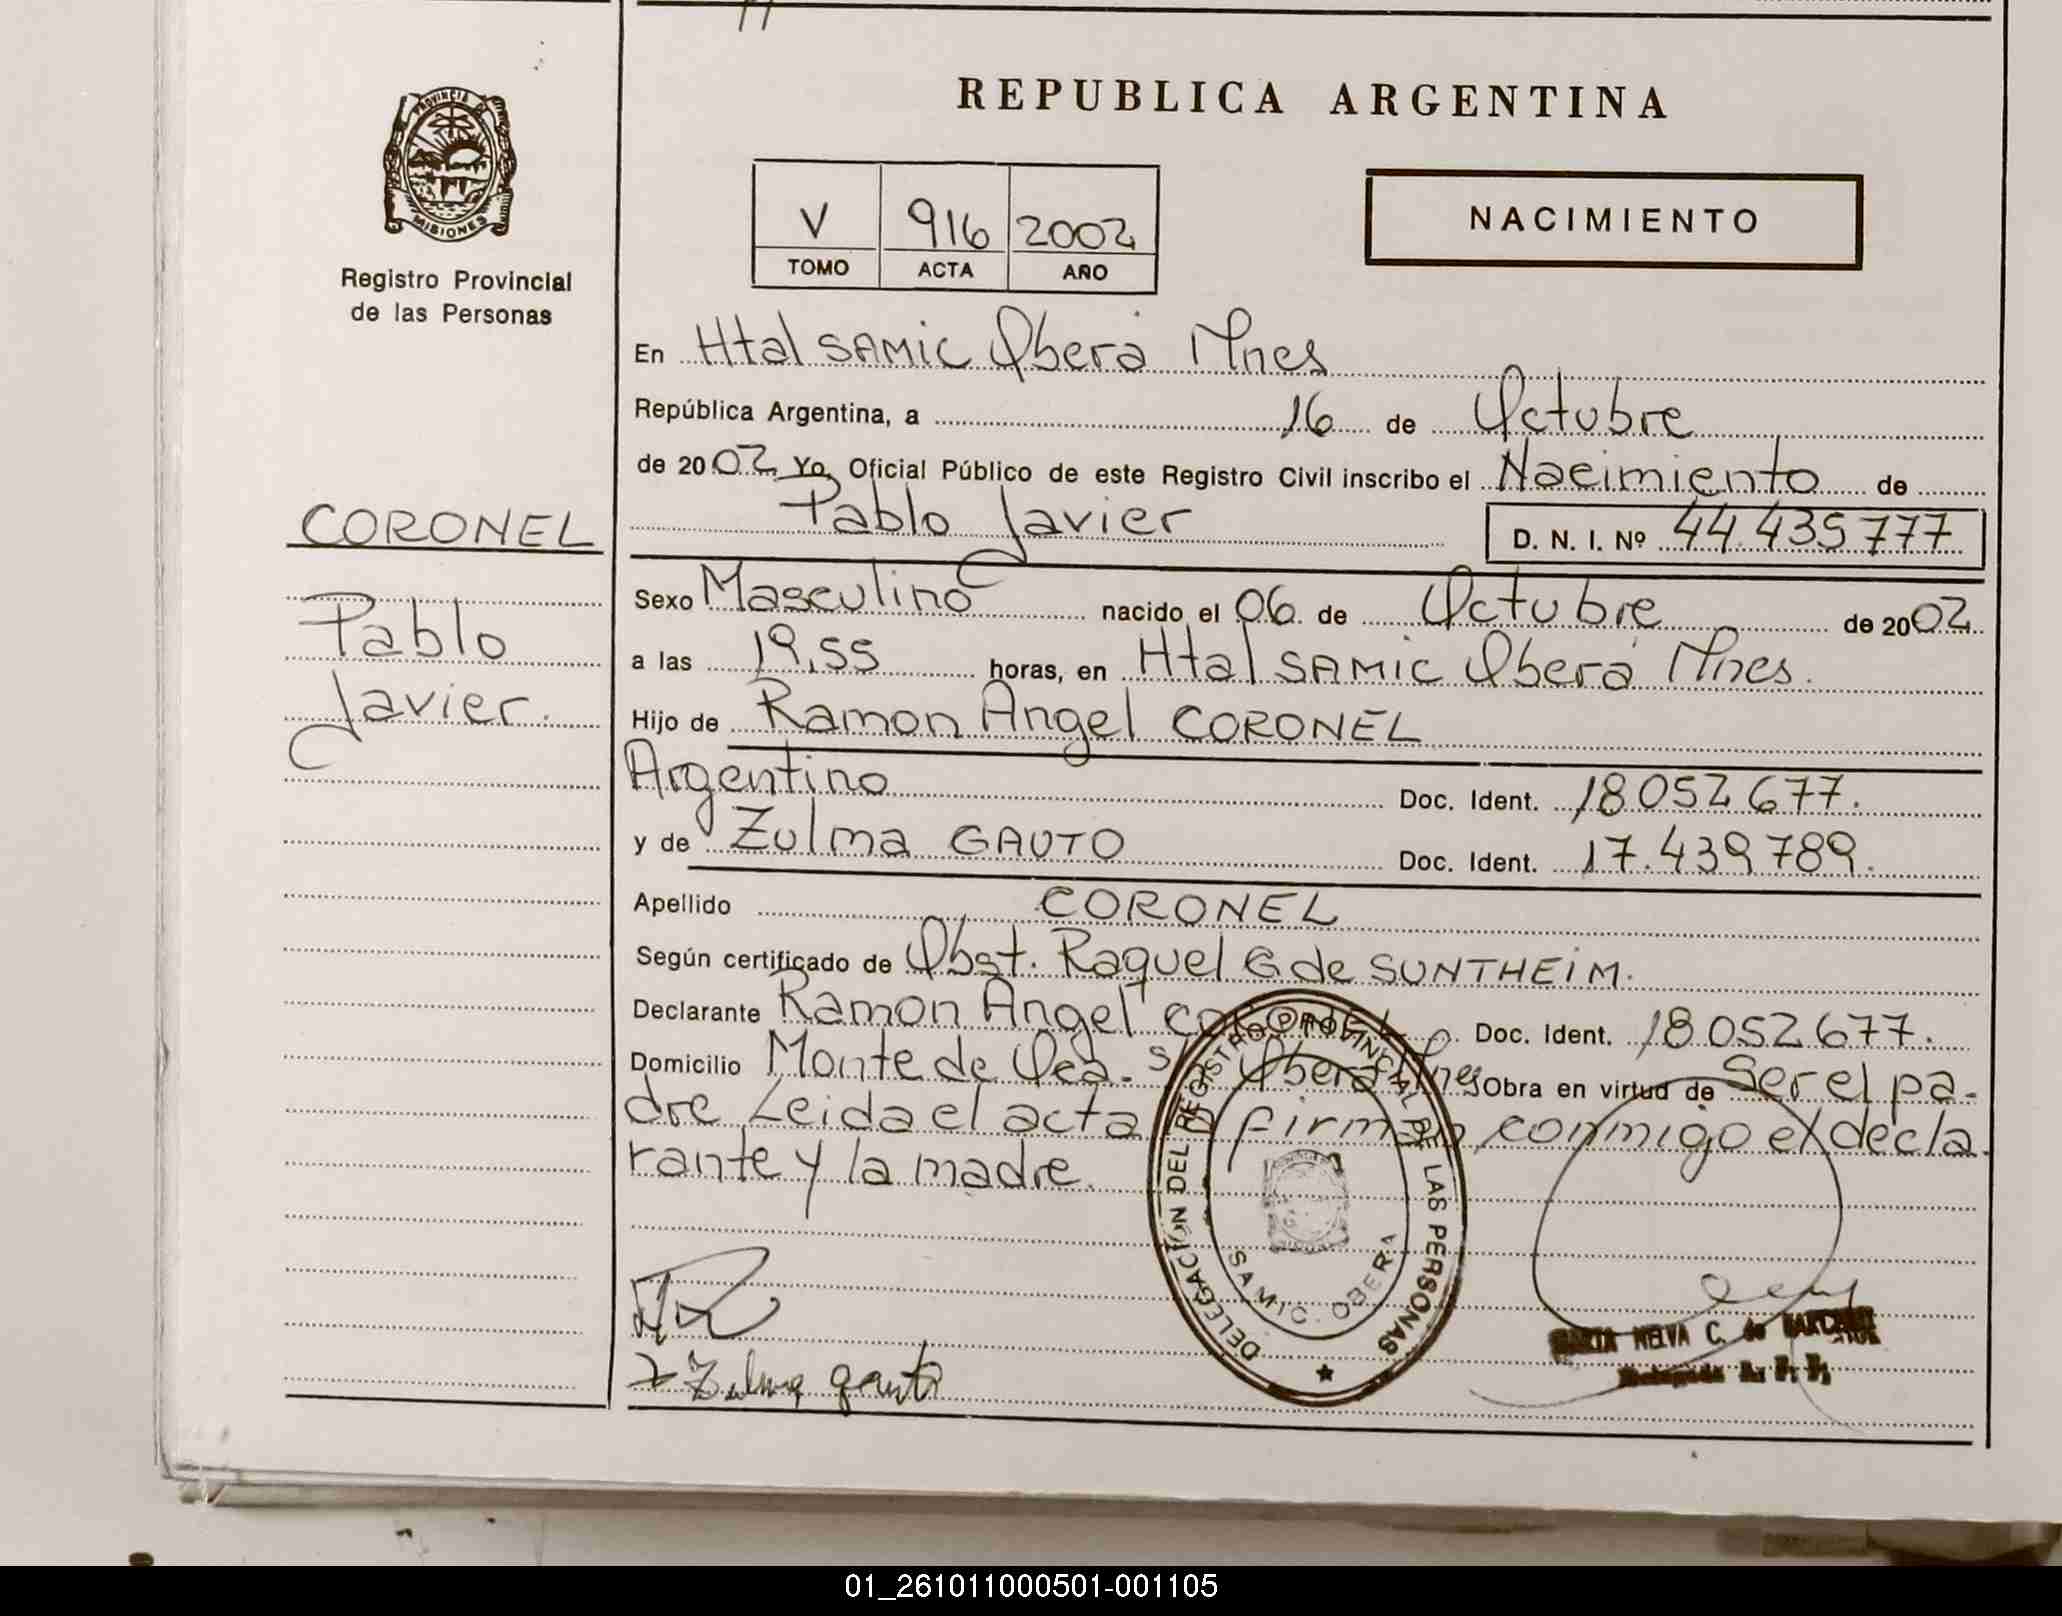 REPUBLICA ARGENTINA
PROVINCIA DE
MISIONES
Registro Provincial
de las Personas
V 916 2002
TOMO ACTA AÑO
NACIMIENTO
En Htal SAMIC Oberá Mnes
República Argentina, a 16 de Octubre
de 2002 Yo, Oficial Público de este Registro Civil inscribo el Nacimiento de
Pablo Javier D. N. I. Nº 44.435777
CORONEL
Pablo
Javier.
Sexo Masculino nacido el 06 de Octubre de 2002
a las 19,55 horas, en Htal SAMIC Oberá Mnes.
Hijo de Ramon Angel CORONEL
Argentino Doc. Ident. 18052677.
y de Zulma GAUTO Doc. Ident. 17.439789.
Apellido CORONEL
Según certificado de Obst. Raquel G de SUNTHEIM.
Declarante Ramon Angel CORONEL Doc. Ident. 18052677.
Domicilio Monte de Oca. Oberá Mnes Obra en virtud de Ser el pa-
dre Leida el acta firman conmigo el decla
rante y la madre.
DELEGACIÓN DEL REGISTRO PROVINCIAL DE LAS PERSONAS
SAMIC. OBERA
Zulma gauto
MELVA C. de
01_261011000501-001105